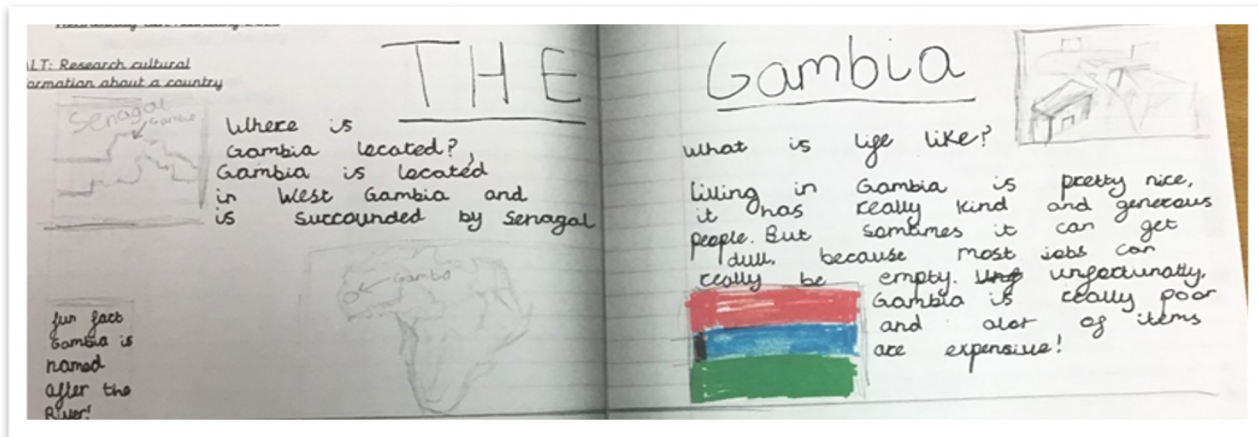 LT: Research cultural
ormation about a country
THE Gambia
Senagal
Gambia
Where is
Gambia located?,
Gambia is located
in West Gambia and
is surrounded by Senagal
Gamba
fun fact
Gambia is
named
after the
River!
What is life like?
Living in Gambia is pretty nice,
it has really kind and generous
people. But somtimes it can get
dull, because most jobs can
really be empty. unfortunatly,
Gambia is really poor
and alot of items
are expensive!